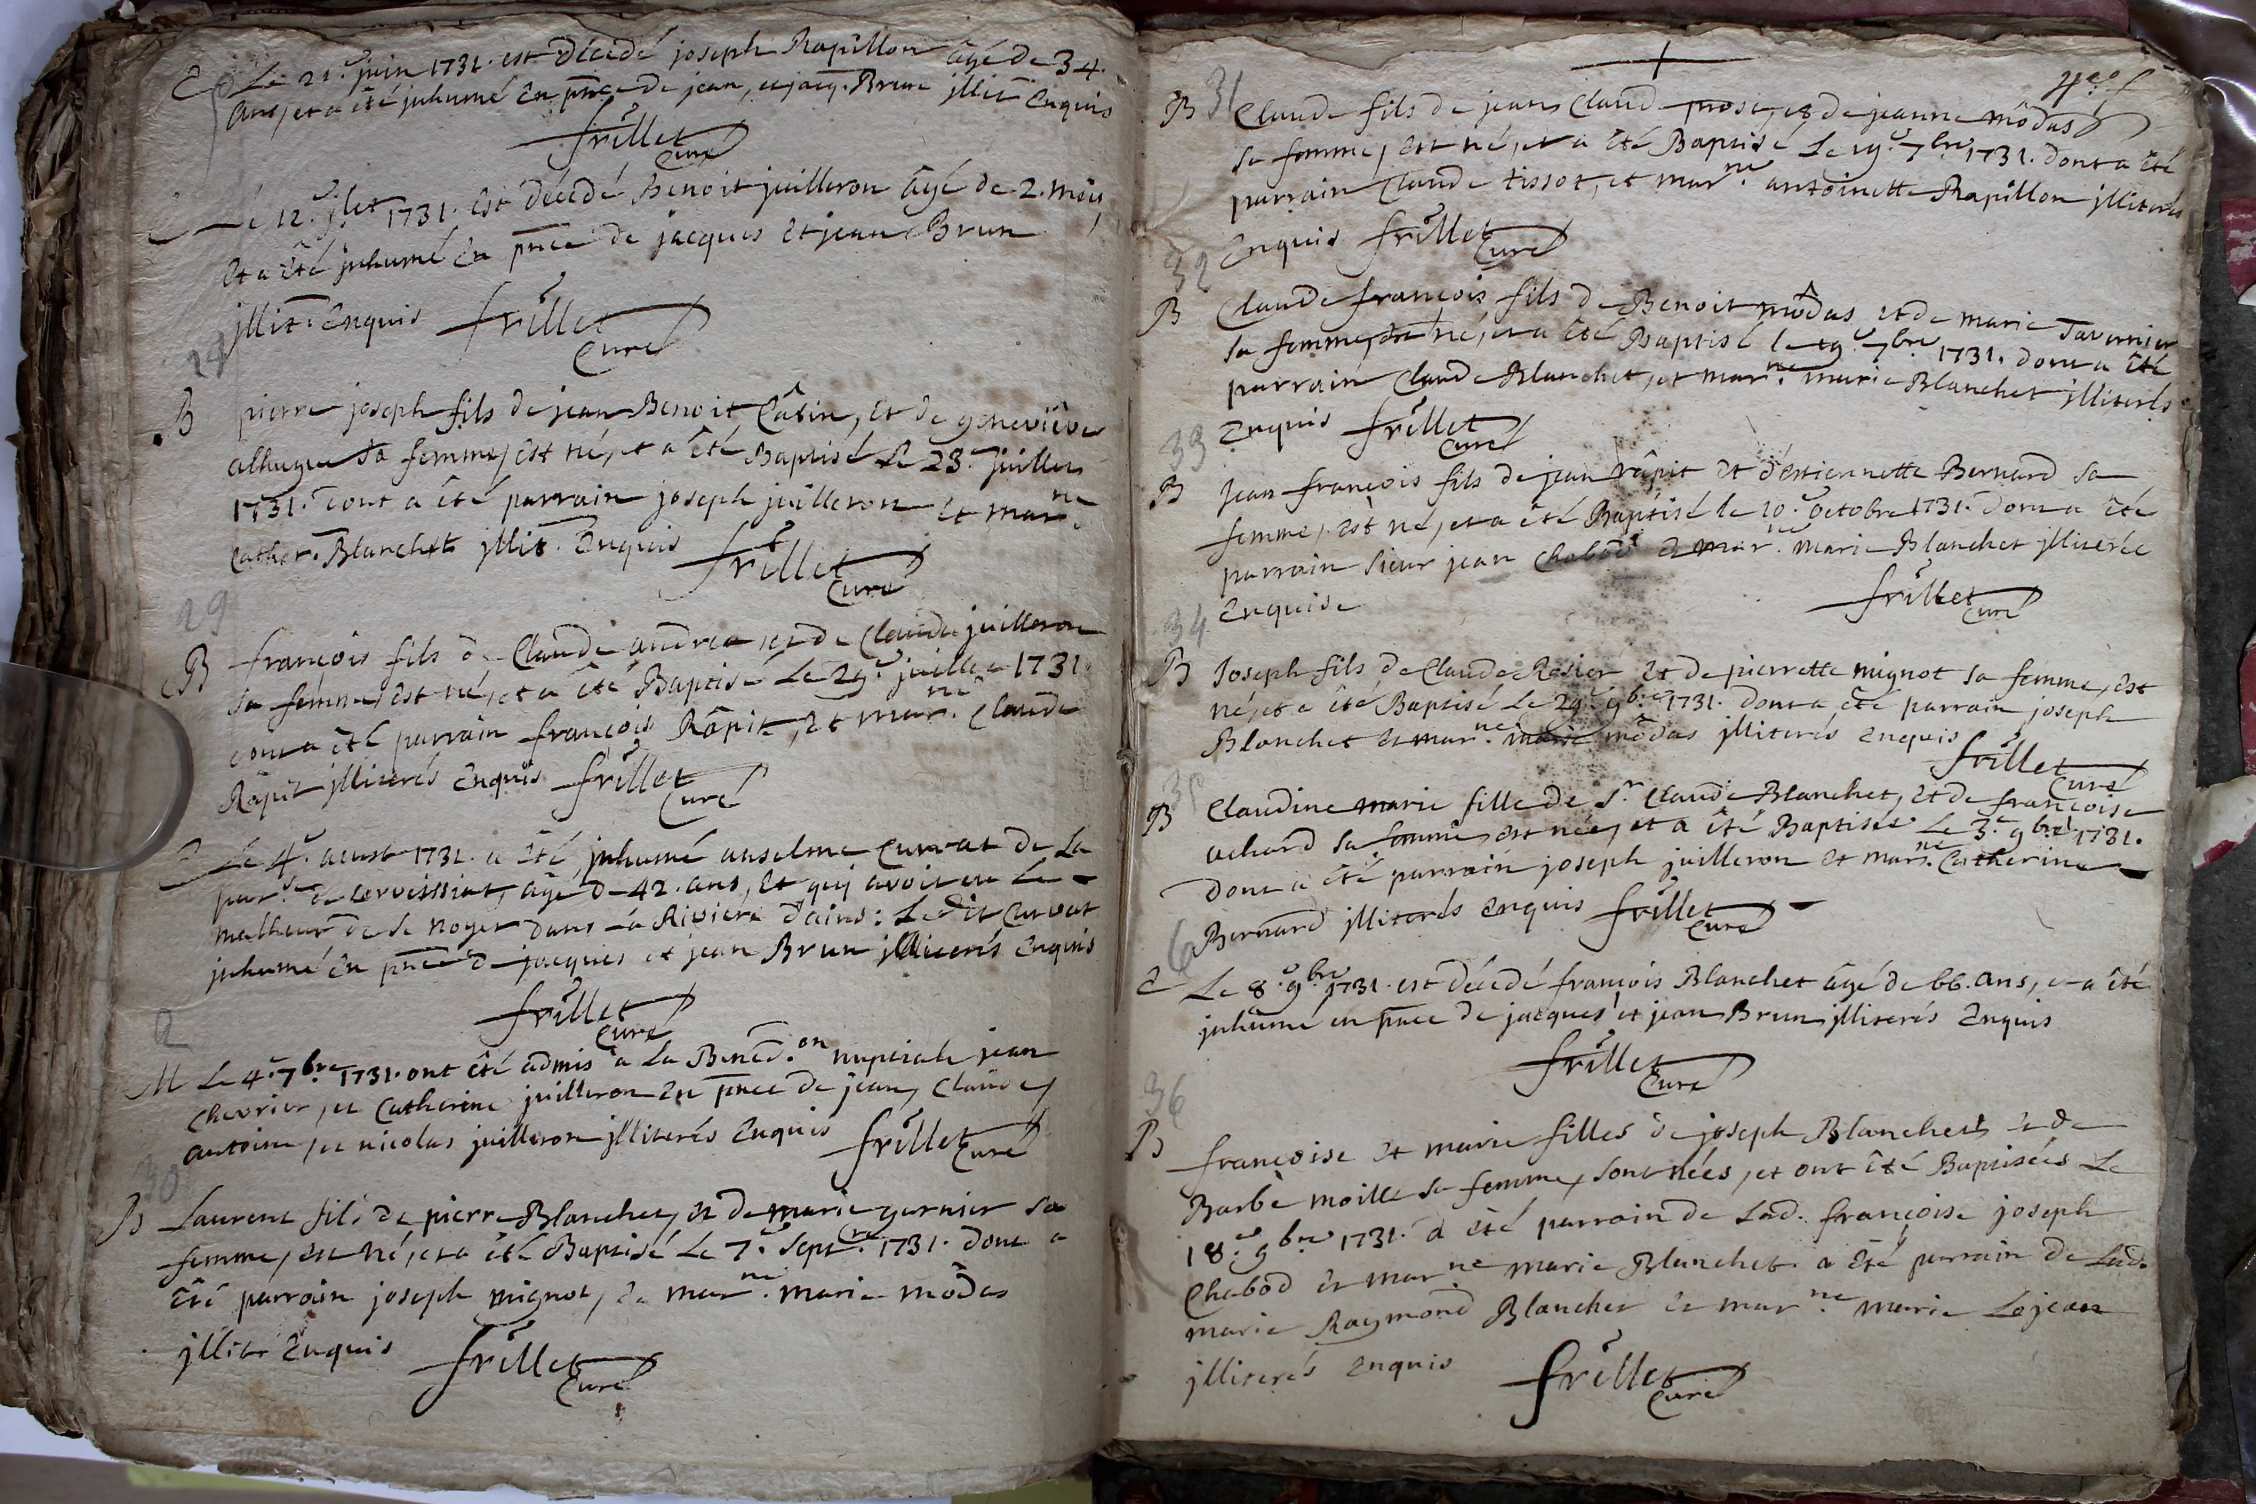 Le 21.e juin 1731. est décedé joseph Rapillon âgé de 34.
ans, et a êté juhumé En pnce de jean, et jacq. Brun jllit Enquis
frillet
Curé
Le 12.e jlet 1731. est décedé Benoit juilleron âgé de 2. mois
Et a êté juhumé En pnce de jacques Et jean Brun
jllit. Enquis frillet
Curé
B pierre joseph fils de jean Benoit Câtin, Et de geneviève
sa femme, est né, et a êté Baptisé Le 23.e juillet
1731. dont a êté parrain joseph juilleron Et mar.ne
Cather. Blanchet jllit. Enquis frillet
Curé
29
B françois fils de Claude andrea, et de Clauda juilleron
sa femme, est né, et a êté Baptisé Le 29.e juillet 1731.
dont a êté parrain françois Râpit, Et mar.ne Claude
Râpit jlliterés Enquis frillet
Curé
Le 4.e aoust 1731. a êté juhumé anselme Curvat de La
par.se de cerveissiat, âgé de 42. ans, Et qui avoit eu Le
malheur de se noyer dans La Riviere d'ains: Ledit Curvat
juhumé En pnce de jacques et jean Brun jlliterés Enquis
frillet
Curé
2
M Le 4.e 7bre 1731. ont êté admis a La Bened.on nuptiale jean
Chevrier, et Catherine juilleron En pnce de jean, Claude,
antoine, et nicolas juilleron jlliterés Enquis frillet
Curé
30
B Laurent fils de pierre Blanchet, et de marie garnier sa
femme, est né, et a êté Baptisé Le 7.e Sept.re 1731. Dont a
êté parrain joseph mignot, Et mar.ne marie môdas
jllité Enquis frillet
Curé
31
B Claude fils de jean Claude prost, et de jeanne môdas
sa femme, est né, et a êté Baptisé Le 19.e 7bre 1731. dont a êté
parrain Claude tissot, et mar.ne antoinette Rapillon jlliterés
Enquis frillet
Curé
32
B Claude françois fils de Benoit môdas et de marie Tavernier
sa femme, est né, et a êté Baptisé le 19.e 7bre 1731. dont a êté
parrain Claude Blanchet, et mar.ne marie Blanchet jlliterés
Enquis frillet
Curé
33
B jean françois fils de jean râpit et d'estiennette Bernard sa
femme, est né, et a êté Baptisé le 10.e octobre 1731. Dont a êté
parrain sieur jean Chabod et mar.ne marie Blanchet jlliterée
Enquise frillet
Curé
34
B Joseph fils de Claude Rosier Et de pierrette mignot sa femme, est
né, et a êté Baptisé Le 29.e 9bre 1731. dont a êté parrain joseph
Blanchet et mar.ne marie môdas jlliterés Enquis frillet
Curé
35
B Claudine marie fille de S.r Claude Blanchet, Et de françoise
achard sa femme, est née, et a êté Baptisée Le 3.e 9bre 1731.
dont a êté parrain joseph juilleron et mar.ne Catherine
Bernard jlliterés Enquis frillet
Curé
6
Le 8.e 9bre 1731. est décedé françois Blanchet âgé de 66. ans, et a êté
juhumé en pnce de jacques et jean Brun jlliterés Enquis
frillet
Curé
36
B françoise et marie filles de joseph Blanchet et de
Barbe moille sa femme, sont nées, et ont êté Baptisées Le
18.e 9bre 1731. a êté parrain de Lad. françoise joseph
Chabod et mar.ne marie Blanchet a êté parrain de Lad.
marie Raymond Blanchet et mar.ne marie Lejean
jlliterés Enquis frillet
Curé